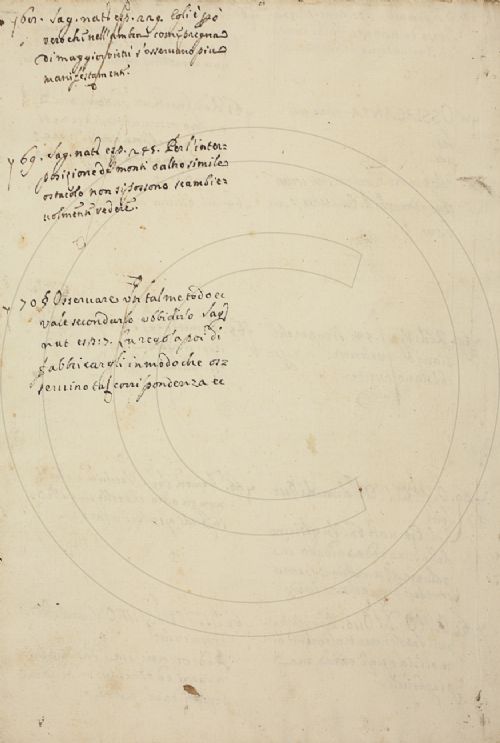 68. Sag. nat. esp. 229. Egli è però
vero che nell'ambra, come pregna
di maggior virtù s'osservano più
manifestamente.
69. Sag. nat. esp. 245. Per l'inter-
posizione de' monti o altro simile
ostacolo non si possono scambie-
volmente vedere.
70 § Osservare un tal metodo ec
vale secondarlo ubbidirlo Sag
nat esp. 7. La regola poi di
fabbricargli in modo che os-
servino tal corrispondenza ec